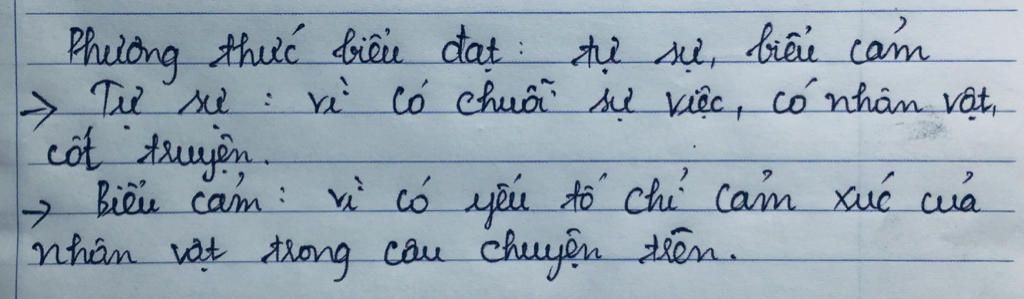 Phương thức biểu đạt: tự sự, biểu cảm
→ Tự sự: vì có chuỗi sự việc, có nhân vật,
cốt truyện.
→ Biểu cảm: vì có yếu tố chỉ cảm xúc của
nhân vật trong câu chuyện trên.